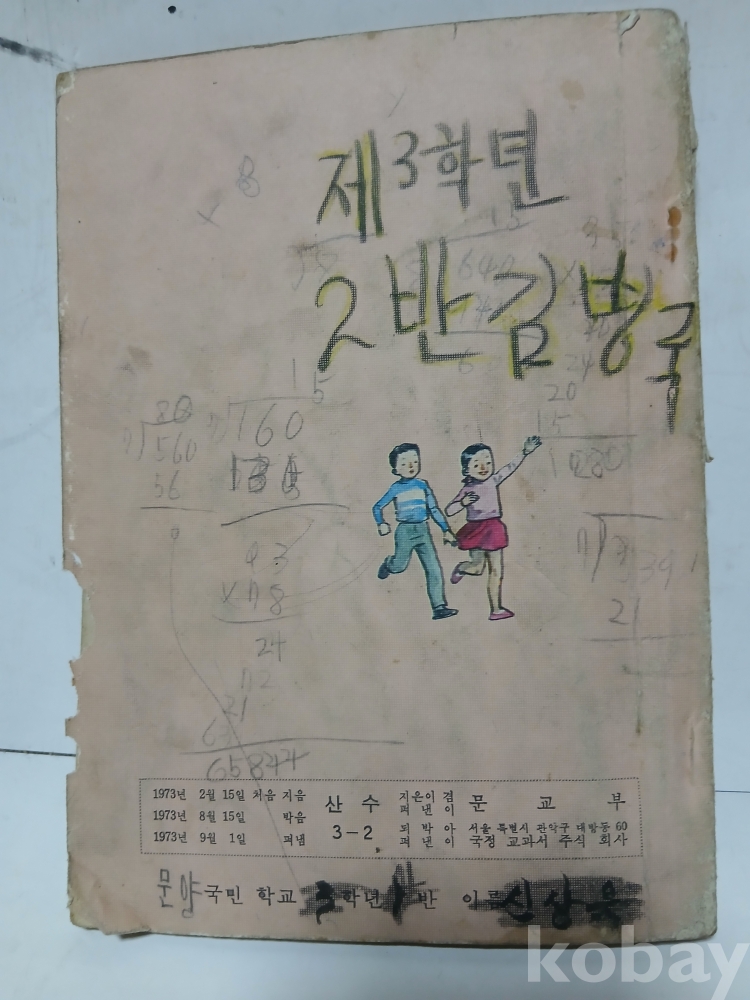 제3학년
2반 김병국
80
560
56
15
160
93
24
21
65844
20
15
21
1973년 2월 15일 처음 지음
1973년 8월 15일 박음
1973년 9월 1일 펴냄
산 수
3-2
지은이 겸
펴 낸 이
문 교 부
되 박 아
펴 낸 이
서울 특별시 관악구 대방동 60
국정 교과서 주식 회사
문양국민 학교 3학년 1반 이름 신상욱
kobay